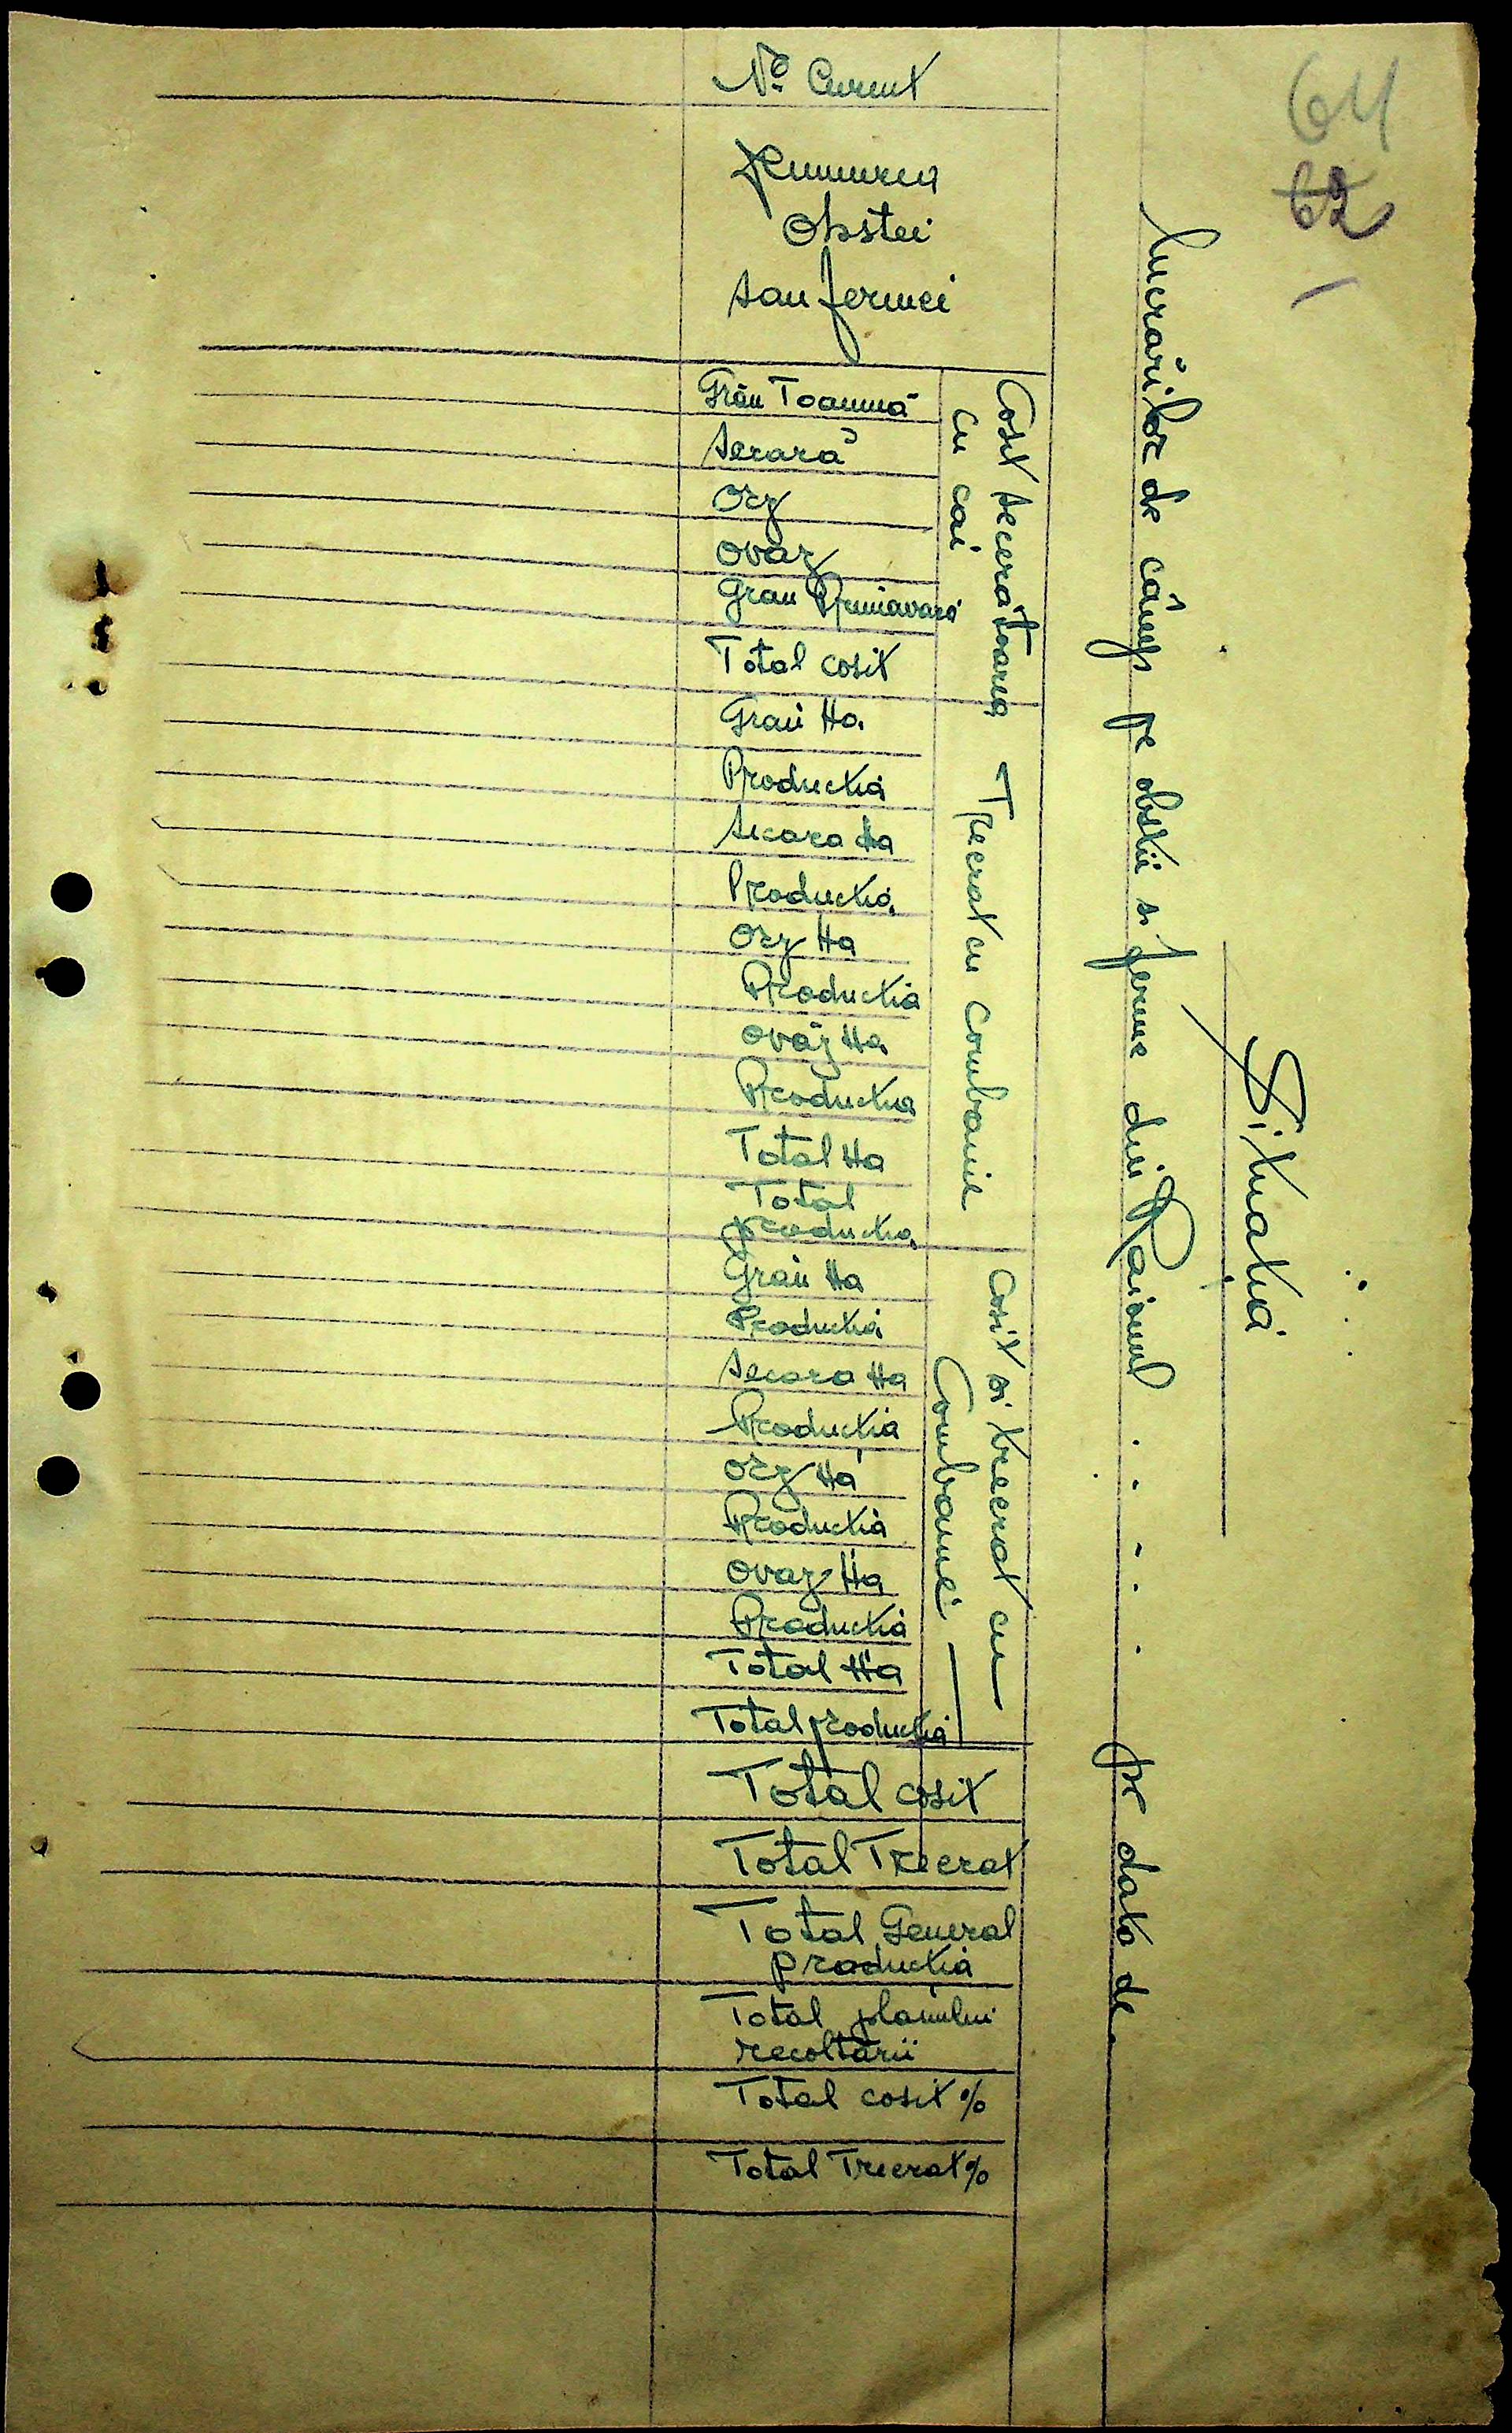 64
62
Situatia
lucrărilor de câmp pe obstii si ferme din Raionul . . . . . pe data de .
No Curent
Denumirea
obstei
sau fermei
Cosit seceratoarea
cu cai
Grâu Toamnă
Secară
Orz
Ovăz
Grau Primavară
Total cosit
Trerat cu combaine
Grau Ha.
Productia
Secara Ha
Productia
Orz Ha
Productia
Ovăz Ha
Productia
Total Ha
Total
productia
Cosit si treerat cu
Combainei
Grâu Ha
Productia
Secara Ha
Productia
Orz Ha
Productia
Ovaz Ha
Productia
Total Ha
Total productia
Total cosit
Total Treerat
Total General
productia
Total planului
recoltării
Total cosit %
Total Treerat %